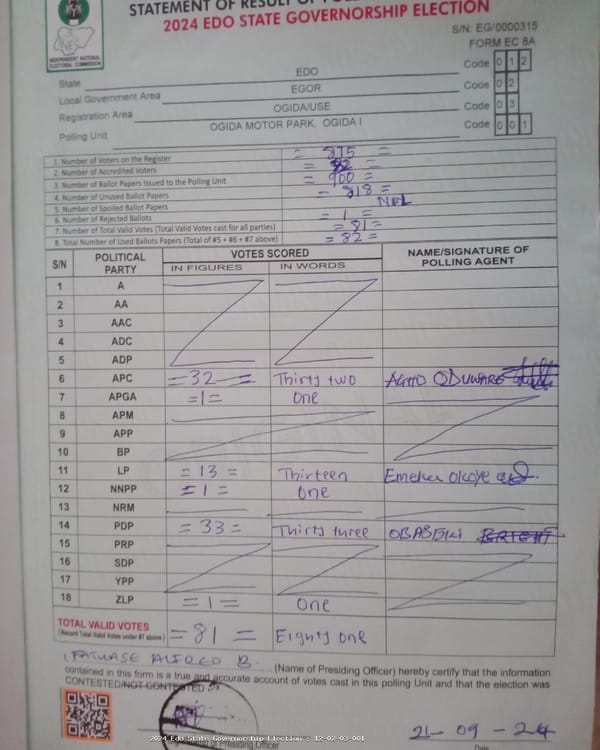 STATEMENT OF RESULT OF
2024 EDO STATE GOVERNORSHIP ELECTION
S/N: EG/0000315
FORM EC 8A
INEC
INDEPENDENT NATIONAL ELECTORAL COMMISSION
State EDO Code 0 1 2
Local Government Area EGOR Code 0 2
Registration Area OGIDA/USE Code 0 3
Polling Unit OGIDA MOTOR PARK, OGIDA I Code 0 0 1
1. Number of Voters on the Register = 875 =
2. Number of Accredited Voters = 82 =
3. Number of Ballot Papers Issued to the Polling Unit = 900 =
4. Number of Unused Ballot Papers = 818 =
5. Number of Spoiled Ballot Papers NIL
6. Number of Rejected Ballots = 1 =
7. Number of Total Valid Votes (Total Valid Votes cast for all parties) = 81 =
8. Total Number of Used Ballots Papers (Total of #5 + #6 + #7 above) = 82 =
S/N POLITICAL PARTY VOTES SCORED NAME/SIGNATURE OF POLLING AGENT
IN FIGURES IN WORDS
1 A
2 AA
3 AAC
4 ADC
5 ADP
6 APC =32= Thirty two ODUWARE
7 APGA =1= One
8 APM
9 APP
10 BP
11 LP = 13 = Thirteen Emeka Okoye
12 NNPP = 1 = One
13 NRM
14 PDP = 33 = Thirty three OBASEKI BRIGHT
15 PRP
16 SDP
17 YPP
18 ZLP = 1 = One
TOTAL VALID VOTES = 81 = Eighty one
(Record Total Valid Votes under #7 above)
I, ALFRED B. (Name of Presiding Officer) hereby certify that the information
contained in this form is a true and accurate account of votes cast in this polling Unit and that the election was
CONTESTED/NOT CONTESTED
21-09-24
2024 Edo State Governorship Election : 12-02-03-001
Presiding Officer
Date